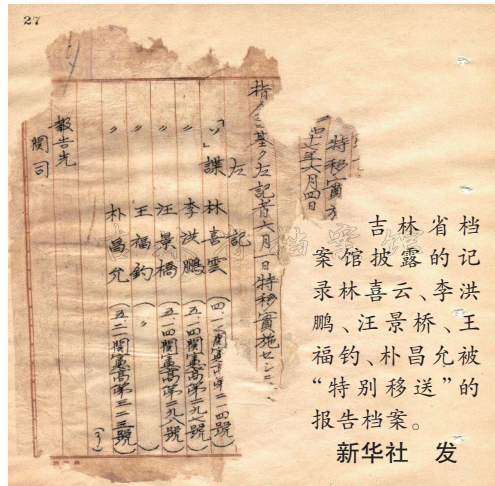 27
特移實方
七年六月四日
指令ニ基ク左記者六月一日特移實施セシニ
左記
「ソ」諜 林喜雲 (四、一二関憲高第二一四號)
〃 李洪鵬 (五、四関憲高第二九七號)
〃 汪景橋 (五、一四関憲高第二九八號)
〃 王福鈞 (〃)
〃 朴昌允 (五、二二関憲高第三二三號)
(了)
報告先
関司
吉林省档
案馆披露的记
录林喜云、李洪
鹏、汪景桥、王
福钧、朴昌允被
“特别移送”的
报告档案。
新华社 发